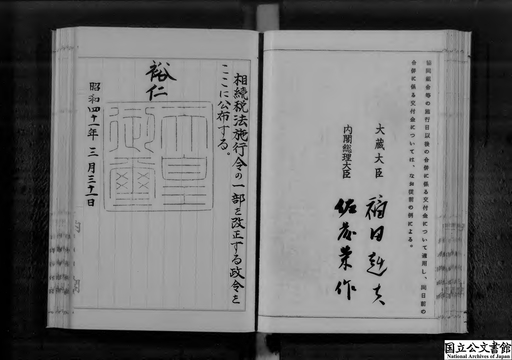 協同組合等の施行日以後の合併に係る交付金について適用し、同日前の
合併に係る交付金については、なお従前の例による。
大蔵大臣 福田赳夫
内閣総理大臣 佐藤榮作
相続税法施行令の一部を改正する政令を
ここに公布する。
裕仁
天皇
御璽
昭和四十一年三月三十一日
国立公文書館
National Archives of Japan